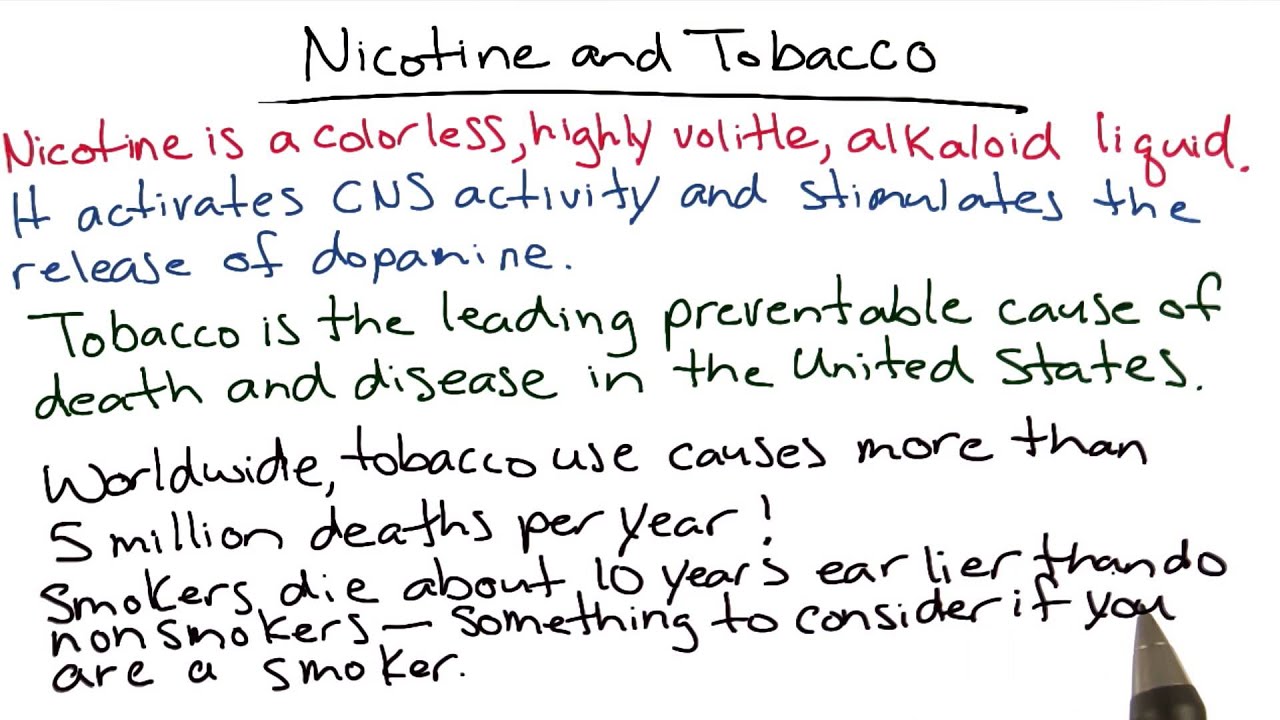 Nicotine and Tobacco
Nicotine is a colorless, highly volitle, alkaloid liquid.
It activates CNS activity and stimulates the
release of dopamine.
Tobacco is the leading preventable cause of
death and disease in the United States.
Worldwide, tobacco use causes more than
5 million deaths per year!
Smokers die about 10 years earlier than do
nonsmokers — something to consider if you
are a smoker.